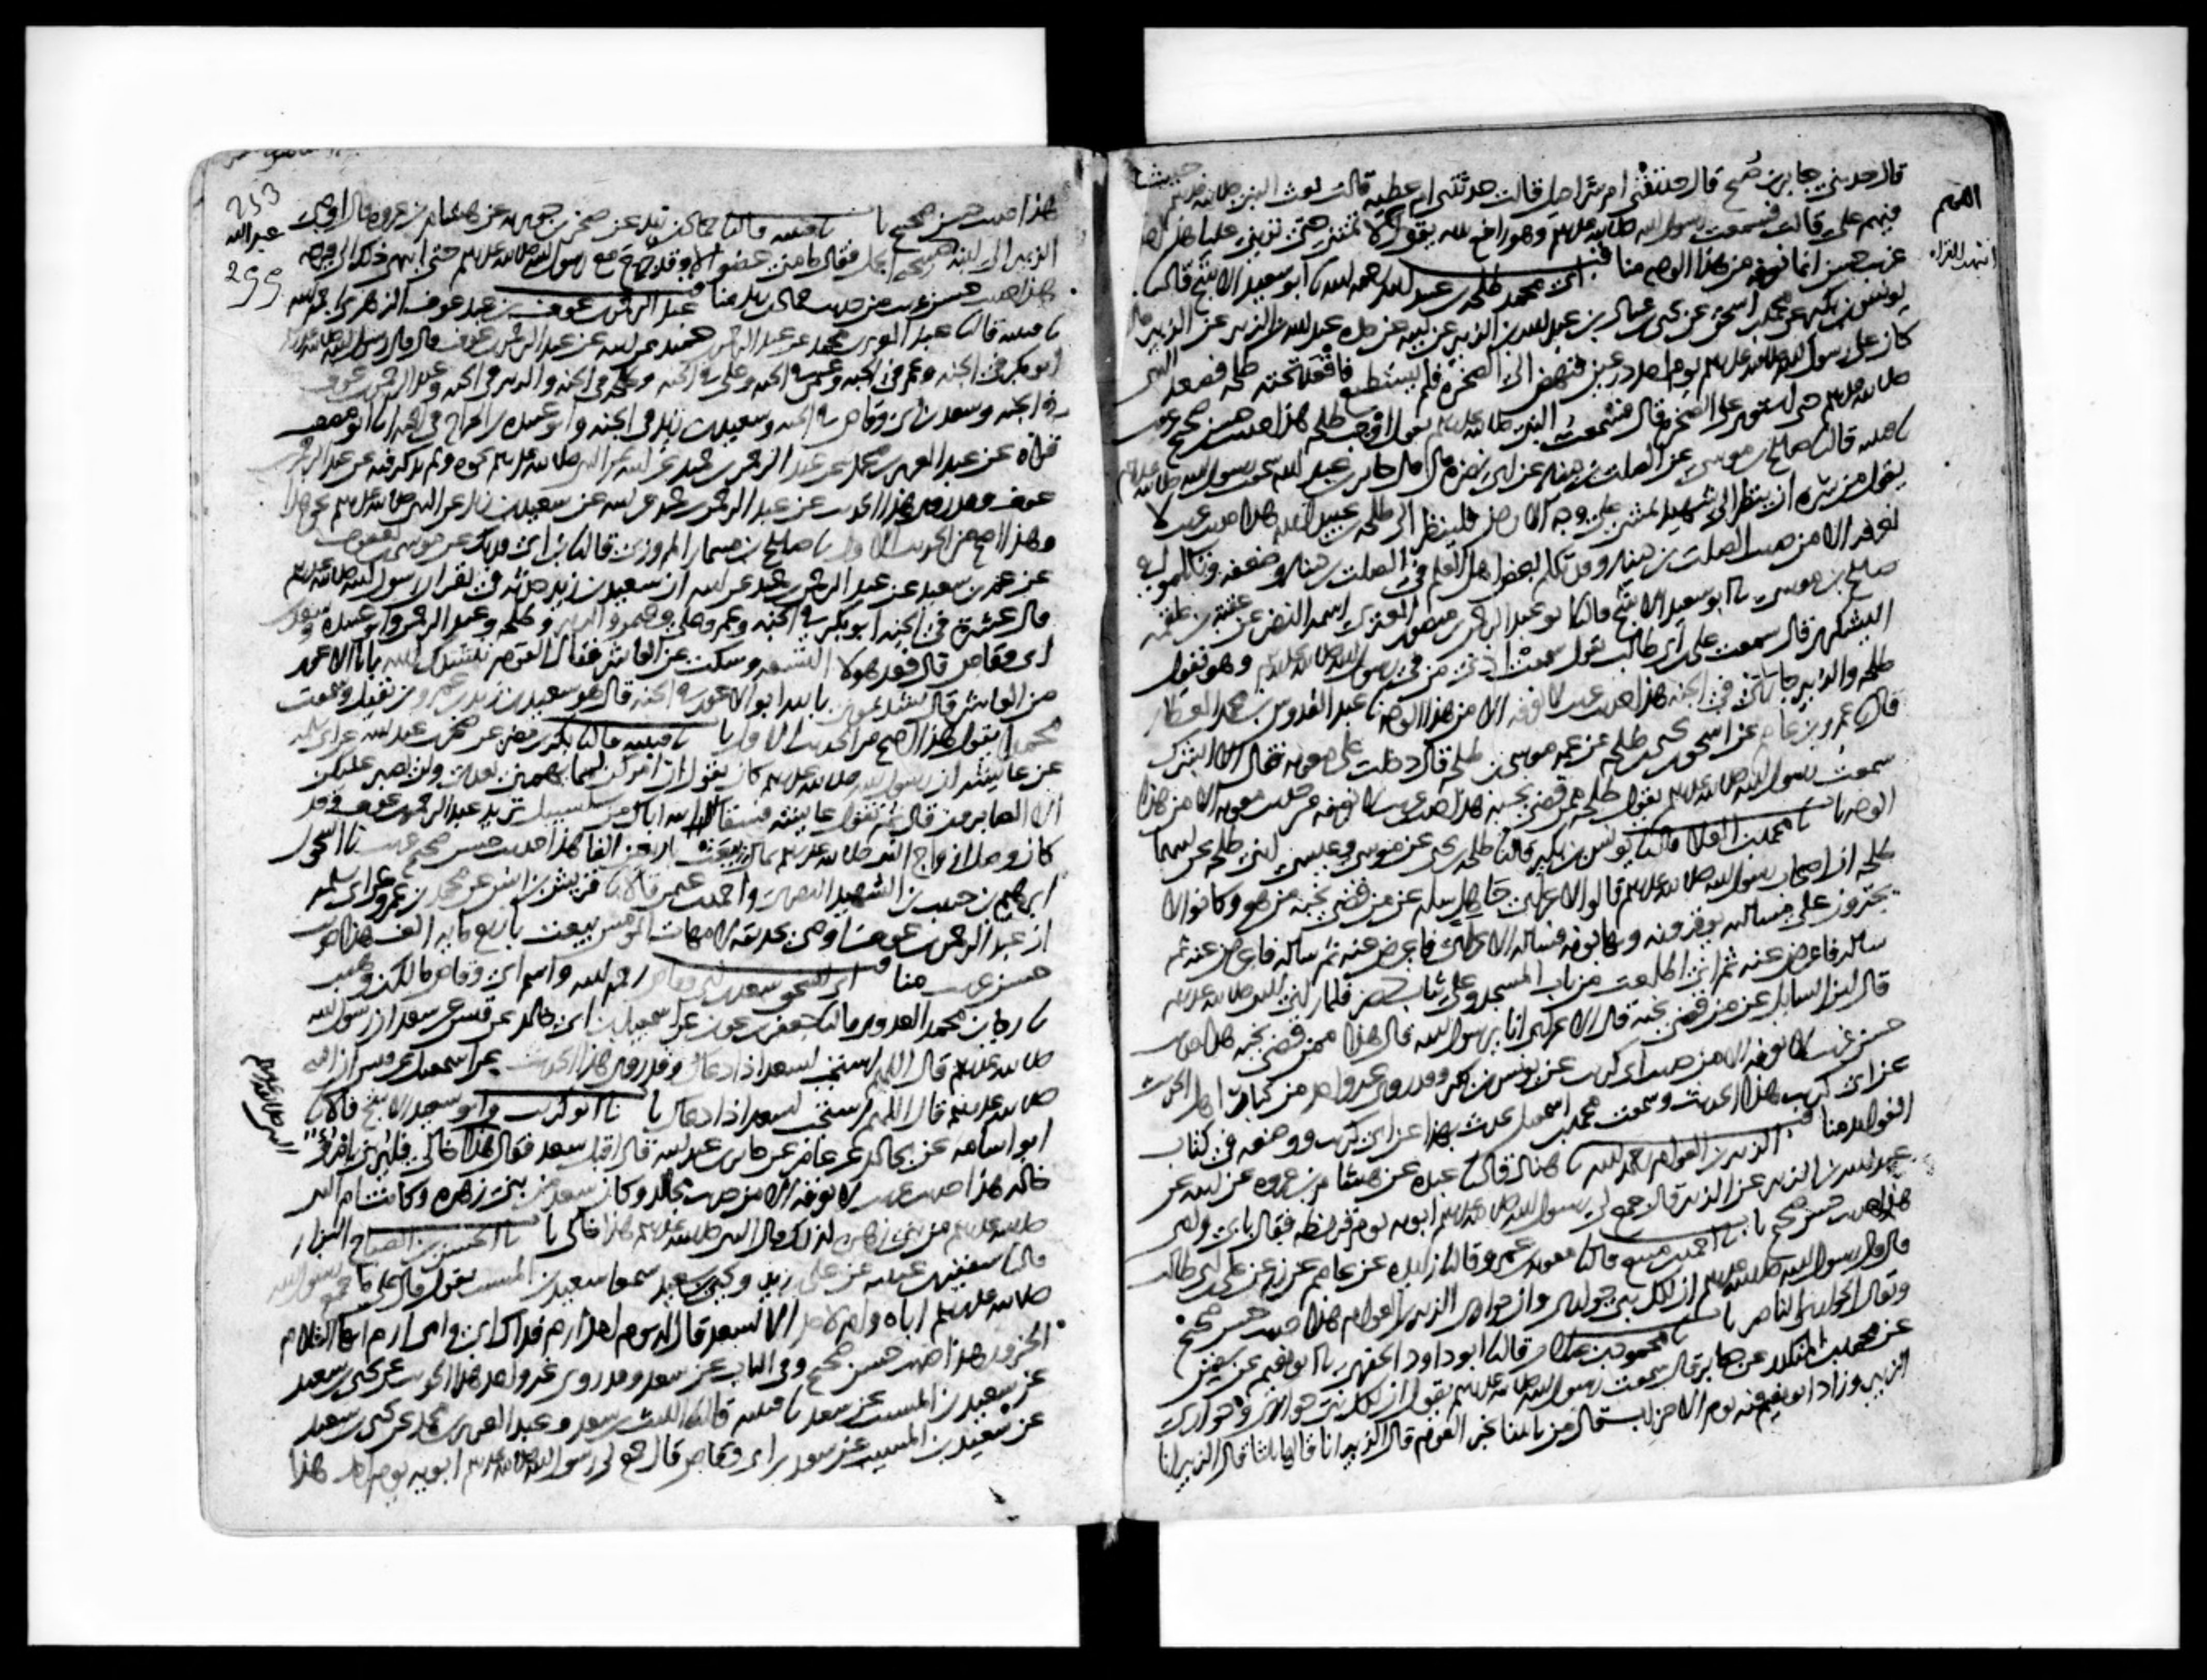 قال حدثني جابر بن صبح قال حدثتني ام شراحيل قالت حدثتني ام عطيه قالت بعث النبي صلى الله عليه وسلم جيشا
فيهم علي قالت فسمعت رسول الله صلى الله عليه وسلم وهو رافع يديه يقول اللهم لا تمتني حتى تريني عليا هذا حديث
اللهم
حسن غريب انما نعرفه من هذا الوجه مناقب ابي محمد طلحة بن عبيد الله رحمه الله نا ابو سعيد الاشج قال نا
يونس بن بكير عن محمد بن اسحق عن يحيى بن عباد بن عبد الله بن الزبير عن ابيه عن جده عبد الله بن الزبير عن الزبير قال
كان على رسول الله صلى الله عليه وسلم يوم احد درعين فنهض الى الصخرة فلم يستطع فاقعد تحته طلحة فصعد النبي
صلى الله عليه وسلم حتى استوى على الصخرة قال فسمعت النبي صلى الله عليه وسلم يقول اوجب طلحة هذا حديث حسن صحيح غريب
نا قتيبة قال نا صالح بن موسى عن الصلت بن دينار عن ابي نضرة قال قال جابر بن عبد الله سمعت رسول الله صلى الله عليه وسلم
يقول من سره ان ينظر الى شهيد يمشي على وجه الارض فلينظر الى طلحة بن عبيد الله هذا حديث غريب لا
نعرفه الا من حديث الصلت بن دينار وقد تكلم بعض اهل العلم في الصلت بن دينار وضعفه وتكلموا في
صالح بن موسى نا ابو سعيد الاشج قال نا ابو عبد الرحمن بن منصور العنزي اسمه النضر عن عقبة بن علقمة
اليشكري قال سمعت علي بن ابي طالب يقول سمعت اذني من في رسول الله صلى الله عليه وسلم وهو يقول
طلحة والزبير جاراي في الجنة هذا حديث غريب لا نعرفه الا من هذا الوجه نا عبد القدوس بن محمد العطار
قال نا عمرو بن عاصم عن اسحق بن يحيى بن طلحة عن عمه موسى بن طلحة قال دخلت على معوية فقال الا ابشرك
سمعت رسول الله صلى الله عليه وسلم يقول طلحة ممن قضى نحبه هذا حديث غريب لا نعرفه من حديث معوية الا من هذا
الوجه باب نا محمد بن العلاء قال نا يونس بن بكير قال نا طلحة بن يحيى عن موسى وعيسى ابني طلحة عن ابيهما
طلحة ان اصحاب رسول الله صلى الله عليه وسلم قالوا لاعرابي جاهل سله عن من قضى نحبه من هو وكانوا لا
يجترون على مسالته يوقرونه ويهابونه فساله الاعرابي فاعرض عنه ثم ساله فاعرض عنه ثم
ساله فاعرض عنه ثم اني اطلعت من باب المسجد وعلي ثياب خضر فلما راني النبي صلى الله عليه وسلم
قال اين السايل عن من قضى نحبه قال الاعرابي انا يا رسول الله قال هذا ممن قضى نحبه هذا حديث
حسن غريب لا نعرفه الا من حديث ابي كريب عن يونس بن بكير وقد روى غير واحد من كبار اهل الحديث
عن ابي كريب هذا الحديث وسمعت محمد بن اسمعيل يحدث بهذا عن ابي كريب ووضعه في كتاب
الفوايد مناقب الزبير بن العوام رحمه الله نا هناد قال نا عبدة عن هشام بن عروة عن ابيه عن
عبد الله بن الزبير عن الزبير قال جمع لي رسول الله صلى الله عليه وسلم ابويه يوم قريظة فقال بابي وامي
هذا حديث حسن صحيح باب نا احمد بن منيع قال نا معوية بن عمرو قال نا زايدة عن عاصم عن زر عن علي بن ابي طالب
قال قال رسول الله صلى الله عليه وسلم ان لكل نبي حواريا وان حواري الزبير بن العوام هذا حديث حسن صحيح
ويقال الحواري الناصر باب نا محمود بن غيلان قال نا ابو داود الحفري نا ابو نعيم عن سفين
عن محمد بن المنكدر عن جابر قال سمعت رسول الله صلى الله عليه وسلم يقول ان لكل نبي حواري وحواري
الزبير وزاد ابو نعيم فيه يوم الاحزاب قال من ياتينا بخبر القوم قال الزبير انا قالها ثلثا قال الزبير انا
هذا حديث حسن صحيح باب نا قتيبة قال نا حماد بن زيد عن صخر بن جويرية عن هشام بن عروة قال اوصى
الزبير الى ابنه عبد الله صبيحة الجمل فقال ما مني عضو الا وقد جرح مع رسول الله صلى الله عليه وسلم حتى انتهى ذلك الى فرجه
هذا حديث حسن غريب من حديث حماد بن زيد مناقب عبد الرحمن بن عوف بن عبد عوف الزهري رحمه الله
نا قتيبة قال نا عبد العزيز بن محمد عن عبد الرحمن بن حميد عن ابيه عن عبد الرحمن بن عوف قال قال رسول الله صلى الله عليه وسلم
ابو بكر في الجنة وعمر في الجنة وعثمن في الجنة وعلي في الجنة وطلحة في الجنة والزبير في الجنة وعبد الرحمن بن عوف
في الجنة وسعد بن ابي وقاص في الجنة وسعيد بن زيد في الجنة وابو عبيدة بن الجراح في الجنة نا ابو مصعب
قراة عن عبد العزيز بن محمد عن عبد الرحمن بن حميد عن ابيه عن النبي صلى الله عليه وسلم نحوه ولم يذكر فيه عن عبد الرحمن بن
عوف وقد روي هذا الحديث عن عبد الرحمن بن حميد عن ابيه عن سعيد بن زيد عن النبي صلى الله عليه وسلم نحو هذا
وهذا اصح من الحديث الاول نا صالح بن مسمار المروزي قال نا ابن ابي فديك عن موسى بن يعقوب
عن عمر بن سعيد عن عبد الرحمن بن حميد عن ابيه ان سعيد بن زيد حدثه في نفر ان رسول الله صلى الله عليه وسلم
قال عشرة في الجنة ابو بكر في الجنة وعمر وعلي وعثمن والزبير وطلحة وعبد الرحمن وابو عبيدة وسعد بن
ابي وقاص قال فعد هولا التسعة وسكت عن العاشر فقال القوم ننشدك الله يابا الاعور
من العاشر قال نشدتموني بالله ابو الاعور في الجنة قال هو سعيد بن زيد بن عمرو بن نفيل وسمعت
محمدا يقول هذا اصح من الحديث الاول باب نا قتيبة قال نا بكر بن مضر عن صخر بن عبد الله عن ابي سلمة
عن عايشة ان رسول الله صلى الله عليه وسلم كان يقول ان امركن لمما يهمني بعدي ولن يصبر عليكن
الا الصابرون قال ثم تقول عايشة فسقى الله اباك من سلسبيل تريد عبد الرحمن بن عوف وقد
كان وصل ازواج النبي صلى الله عليه وسلم بمال بيعت باربعين الفا هذا حديث حسن صحيح غريب نا اسحق بن
ابرهيم بن حبيب بن الشهيد البصري واحمد بن عثمن قالا نا قريش بن انس عن محمد بن عمرو عن ابي سلمة
ان عبد الرحمن بن عوف اوصى بحديقة لامهات المومنين بيعت باربع ماية الف هذا حديث
حسن غريب مناقب ابي اسحق سعد بن ابي وقاص رحمه الله واسم ابي وقاص مالك بن وهيب
نا رجاء بن محمد العدوي قال نا جعفر بن عون عن اسمعيل بن ابي خالد عن قيس عن سعد ان رسول الله
صلى الله عليه وسلم قال اللهم استجب لسعد اذا دعاك وقد روي هذا الحديث عن اسمعيل عن قيس ان النبي
صلى الله عليه وسلم قال اللهم استجب لسعد اذا دعاك باب نا ابو كريب وابو سعيد الاشج قالا نا
ابو اسامة عن مجالد عن عامر عن جابر بن عبد الله قال اقبل سعد فقال هذا خالي فليرني امرؤ
خاله هذا حديث غريب لا نعرفه الا من حديث مجالد وكان سعد من بني زهرة وكانت ام النبي
صلى الله عليه وسلم من بني زهرة لذلك قال النبي صلى الله عليه وسلم هذا خالي باب نا الحسن بن الصباح البزار
قال نا سفين بن عيينة عن علي بن زيد ويحيى بن سعيد سمعا سعيد بن المسيب يقول قال علي ما جمع رسول الله
صلى الله عليه وسلم اباه وامه لاحد الا لسعد قال له يوم احد ارم فداك ابي وامي ارم ايها الغلام
الحزور هذا حديث حسن صحيح وفي الباب عن سعد وقد روى غير واحد هذا الحديث عن يحيى بن سعيد
عن سعيد بن المسيب عن سعد نا قتيبة قال نا الليث بن سعد وعبد العزيز بن محمد عن يحيى بن سعيد
عن سعيد بن المسيب عن سعد بن ابي وقاص قال جمع لي رسول الله صلى الله عليه وسلم ابويه يوم احد هذا